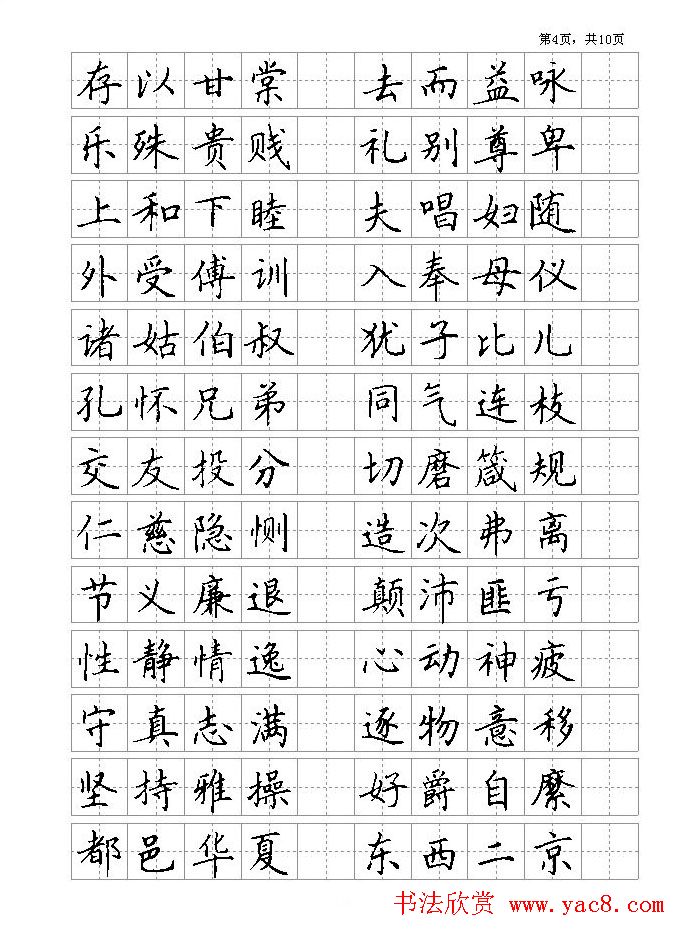 第4页，共10页
存以甘棠 去而益咏
乐殊贵贱 礼别尊卑
上和下睦 夫唱妇随
外受傅训 入奉母仪
诸姑伯叔 犹子比儿
孔怀兄弟 同气连枝
交友投分 切磨箴规
仁慈隐恻 造次弗离
节义廉退 颠沛匪亏
性静情逸 心动神疲
守真志满 逐物意移
坚持雅操 好爵自縻
都邑华夏 东西二京
书法欣赏 www.yac8.com